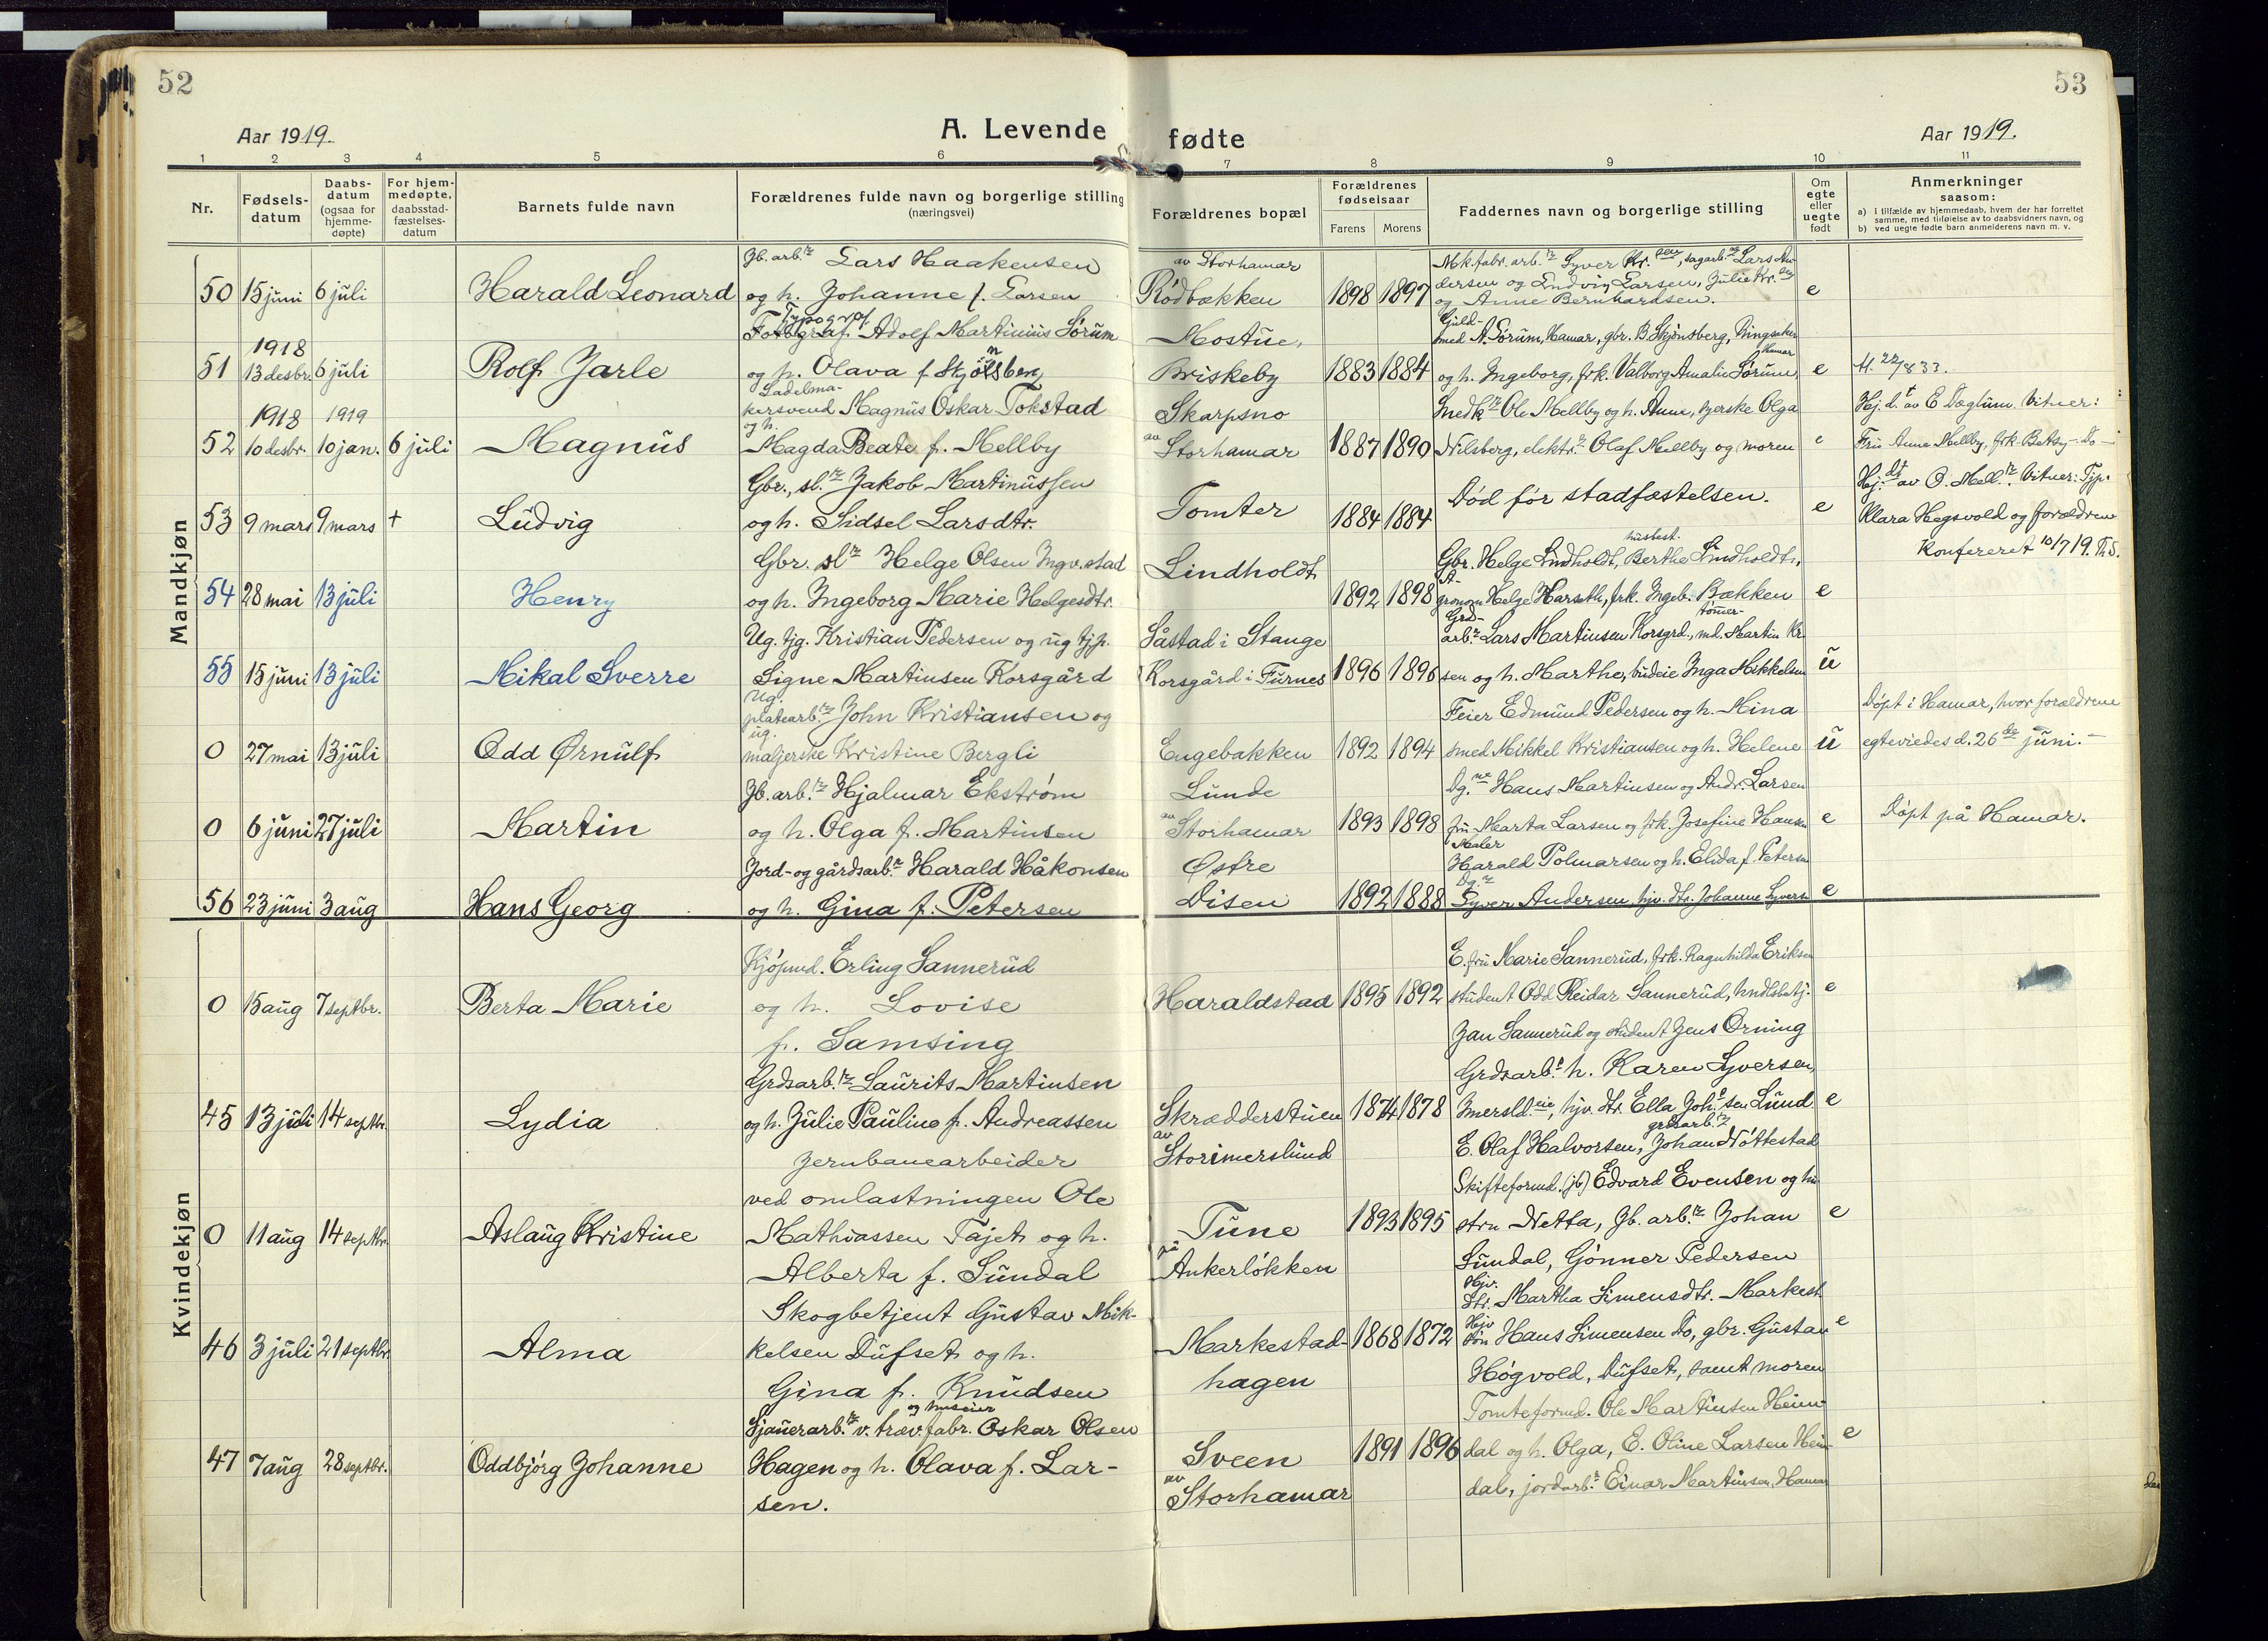 52
53
Aar 1919.
A. Levende
fødte
Aar 1919.
1 2 3 4 5 6 7 8 9 10 11
Nr.
Fødsels-
datum
Daabs-
datum
(ogsaa for
hjemme-
døpte)
For hjem-
medøpte,
daabsstad-
fæstelses-
datum
Barnets fulde navn
Forældrenes fulde navn og borgerlige stilling
(næringsvei)
Forældrenes bopæl
Forældrenes
fødselsaar
Farens Morens
Faddernes navn og borgerlige stilling
Om
egte
eller
uegte
født
Anmerkninger
saasom:
a) i tilfælde av hjemmedaab, hvem der har forrettet
samme, med tilføielse av to daabsvidners navn, og
b) ved uegte fødte barn anmelderens navn m. v.
Mandkjøn
50 15 juni 6 juli Harald Leonard
Jb. arb.r Lars Haakensen
og h. Johanne f. Larsen
av Storhamar
Rödbækken
1898 1897
Mk. fabr. arb.r Syver Kr. sen, sagarb.r Lars An-
dersen og Ludvig Larsen, Julie Kr. sen
og Anne Bernhardsen.
e
51 1918
13 desbr. 6 juli Rolf Jarle
Typograf
Fotograf Adolf Martinius Sörum
og h. Olava f. Skjönsberg
Mostue,
Briskeby
1883 1884
Guld-
smed A. Sörum, Hamar, gbr. B. Skjönsberg, Ringsaker
og h. Ingeborg, frk. Valborg Amalie Sörum, Hamar
e
H. 22/8 33.
52 1918 1919
10 desbr. 10 jan. 6 juli Magnus
Sadelma-
kersvend Magnus Oskar Tokstad
og h.
Magda Beate f. Mellby
Skarpsno
av
Storhamar
1887 1890
Smedk.r Ole Mellby og h. Anne, syerske Olga
Nilsberg, elektr.r Olaf Mellby og moren
e
Hj. d.t av E Dæglum. Vitner:
Fru Anne Mellby, frk. Betsy – Do –
53 9 mars 9 mars + Ludvig
Gbr., sl.r Jakob Martinussen
og h. Sidsel Larsdtr.
Tomter
1884 1884
Död för stadfæstelsen.
e
Hj. dt av O. Mell.r Vitner: Tjp.
Klara Hegsvold og forældrene
Konfereret 10/7 19. Th S.
54 28 mai 13 juli Henry
Gbr. slr Helge Olsen Ingv.stad
og h. Ingeborg Marie Helgesdtr.
Lindholdt
1892 1898
husbest.
Gbr. Helge Lindholdt, Berthe Lindholdt,
A-
gronom Helge Harseth, frk. Ingeb. Bækken
e
55 15 juni 13 juli Mikal Sverre
Ug. tjg. Kristian Pedersen og ug tjp.
Signe Martinsen Korsgård
Såstad i Stange
Korsgård i Furnes
1896 1896
Grd- tömer-
arb.r Lars Martinsen Korsgrd., md. Martin Kr.
sen og h. Marthe, budeie Inga Mikkelsen
u
0 27 mai 13 juli Odd Ørnulf
Ug.
platearb.r John Kristiansen og
ug.
maljerske Kristine Bergli
Engebakken
1892 1894
Feier Edmund Pedersen og h. Mina
smed Mikkel Kristiansen og h. Helene
u
Döpt i Hamar, hvor forældrene
egteviedes d. 26de juni.–
0 6 juni 27 juli Martin
Jb. arb.r Hjalmar Ekström
og h. Olga f. Martinsen
Lunde
av
Storhamar
1893 1898
Dg.ne Hans Martinsen og Andr. Larsen
fru Marta Larsen og frk. Josefine Hansen
e
Döpt på Hamar.
56 23 juni 3 aug Hans Georg
Jord- og gårdsarb.r Harald Håkonsen
og h. Gina f. Petersen
Østre
Disen
1892 1888
Maler
Harald Polmarsen og h. Elida f. Petersen
Dg.r
Syver Andersen, hjv. dtr. Johanne Syversen
e
Kvindekjøn
0 15 aug 7 septbr. Berta Marie
Kjöpmd. Erling Sannerud
og h. Lovise
f. Samsing
Haraldstad
1895 1892
E. fru Marie Sannerud, frk. Ragnhilda Eriksen
student Odd Reidar Sannerud, hndlsbetj.
Jan Sannerud og student Jens Orning
e
45 13 juli 14 septbr. Lydia
Grdsarb.r Laurits Martinsen
og h. Julie Pauline f. Andreassen
Skrædderstuen
av
Storimerslund
1874 1878
Grdsarb.s h. Karen Syversen,
Imersld.eie, hjv. dtr. Ella Joh.s sen Lund
grdsarb.r
E. Olaf Halvorsen, Johan Nöttestad
e
0 11 aug 14 septbr. Aslaug Kristine
Jernbanearbeider
ved omlastningen Ole
Mathiassen Tajet og h.
Alberta f. Sundal
Tune
på
Ankerlökken
1893 1895
Skifteformd. (jb) Edvard Evensen og hu
stru Netta, Jb. arb.r Johan
Sundal, Gönner Pedersen
e
46 3 juli 21 septbr. Alma
Skogbetjent Gustav Mik-
kelsen Dufset og h.
Gina f. Knudsen
Markestad-
hagen
1868 1872
Hjv.
dtr. Martha Simensdtr. Markest.
Hjv
sön Hans Simensen Do, gbr. Gustav
Högvold, Dufset, samt moren
e
47 7 aug 28 septbr. Oddbjörg Johanne
og huseier
Sjauerarb.r v. træv.fabr. Oskar Olsen
Hagen og h. Olava f. Lar-
sen.
Sveen
av
Storhamar
1891 1896
Tomteformd. Ole Martinsen Heim-
dal og h. Olga, E. Oline Larsen Heim-
dal, jordarb.r Einar Martinsen, Hamar
e